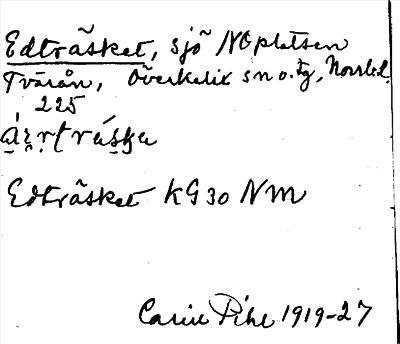 Edträsket, sjö NO platsen
Tvärån, Överkalix sn o. tg, Norrb.l.
225
Edträsket KG 30 NM
Carin Pihl 1919-27